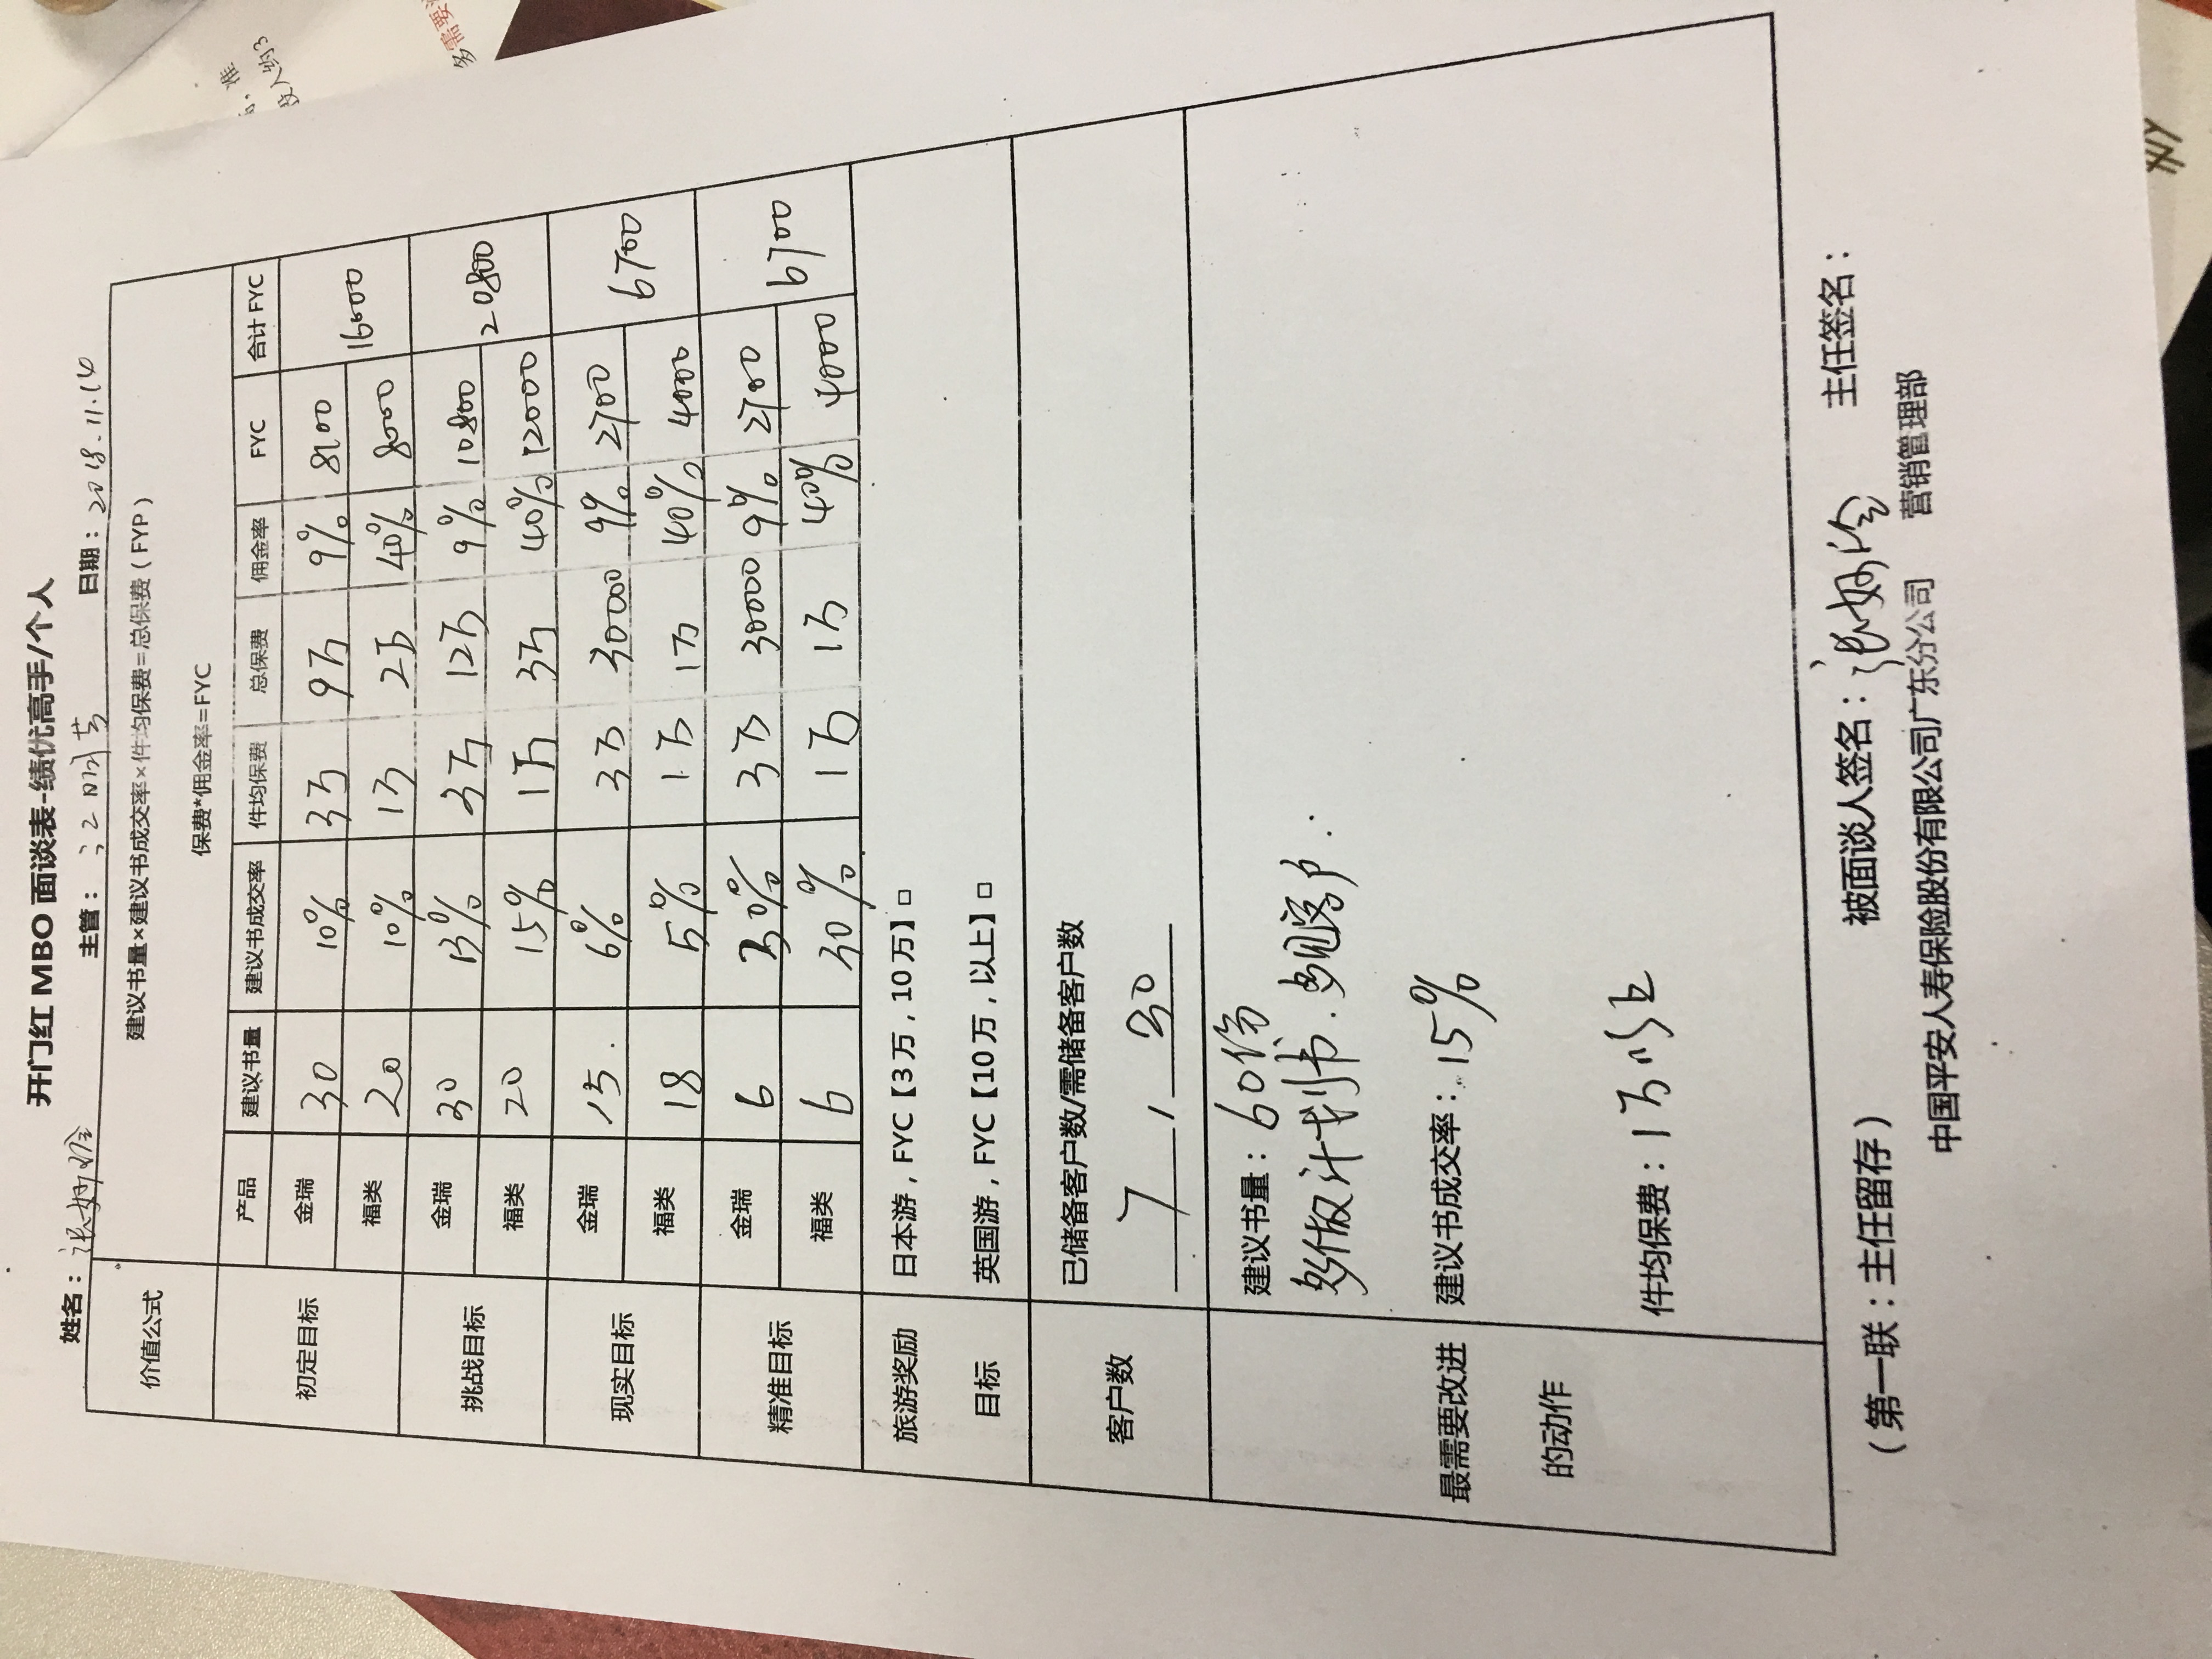 开门红 MBO 面谈表-绩优高手/个人
姓名： 主管： 日期：2018.11.14
价值公式 建议书量×建议书成交率×件均保费=总保费（FYP）
保费*佣金率=FYC
产品 建议书量 建议书成交率 件均保费 总保费 佣金率 FYC 合计 FYC
初定目标 金瑞 30 10% 3万 9万 9% 8100 16000
福类 20 10% 1万 2万 40% 8000
挑战目标 金瑞 30 13% 3万 12万 9% 10800 20800
福类 20 15% 1万 3万 40% 12000
现实目标 金瑞 15 6% 3万 30000 9% 2700 6700
福类 18 5% 1万 1万 40% 4000
精准目标 金瑞 6 30% 3万 30000 9% 2700 6700
福类 6 30% 1万 1万 40% 4000
旅游奖励 日本游，FYC【3万，10万】□
目标 英国游，FYC【10万，以上】□
客户数 已储备客户数/需储备客户数
7 , 30
最需要改进
的动作
建议书量：60份
多做计划书.多见客户.
建议书成交率：15%
件均保费：1万以上
被面谈人签名： 主任签名：
（第一联：主任留存）
中国平安人寿保险股份有限公司广东分公司 营销管理部
多需要